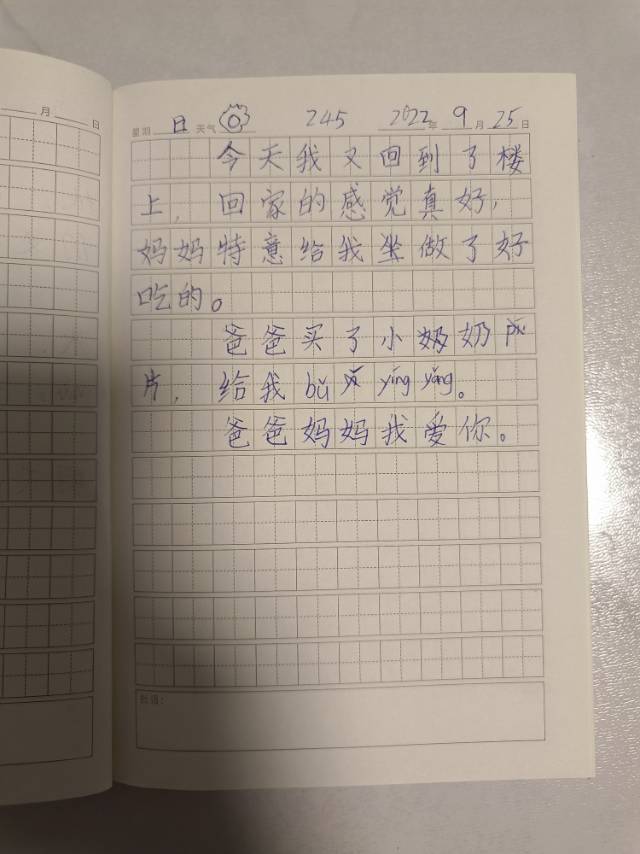 月 日
星期 日 天气 245 2022年 9月 25日
今天我又回到了楼
上，回家的感觉真好，
妈妈特意给我坐做了好
吃的。
爸爸买了小奶奶
片，给我bǔ yíng yǎng。
爸爸妈妈我爱你。
批语：